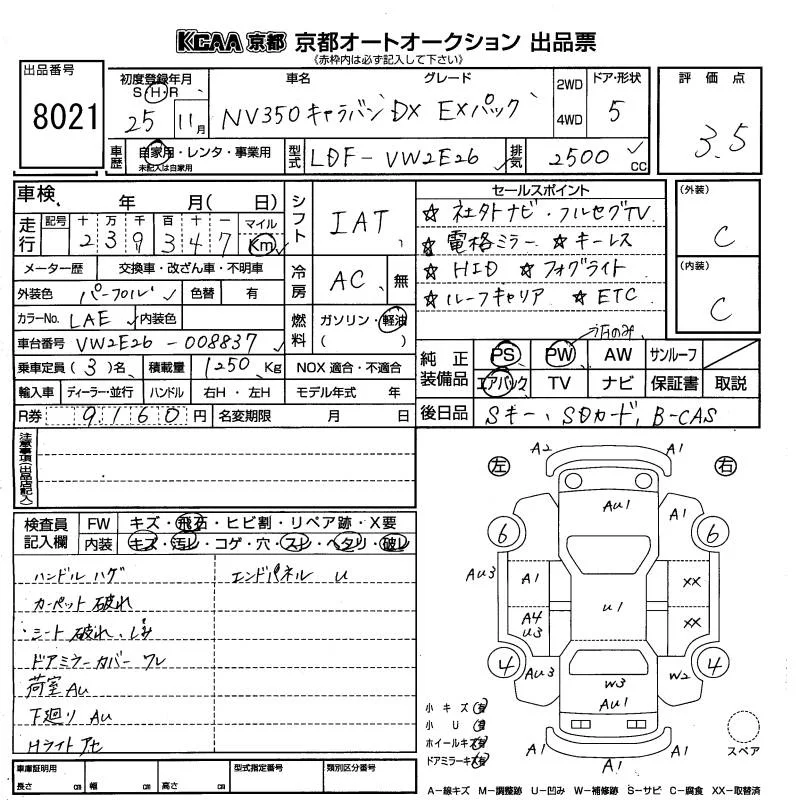 KCAA 京都 京都オートオークション 出品票
《赤枠内は必ず記入して下さい》
出品番号
8021
初度登録年月
S・H・R
25 11月
車名 グレード
NV350キャラバン DX EXパック
2WD
4WD
ドア・形状
5
評価点
3.5
車歴
自家用・レンタ・事業用
未記入は自家用
型式
LDF-VW2E26
排気
2500 CC
車検 年 月( 日)
走行
記号 十 万 千 百 十 一
239347
マイル
Km
メーター歴 交換車・改ざん車・不明車
外装色 パープル 色替 有
カラーNo. LAE 内装色
車台番号 VW2E26-008837
乗車定員 (3)名 積載量 1250 Kg
輸入車 ディーラー・並行 ハンドル 右H・左H モデル年式 年
R券 9160円 名変期限 月 日
シフト
IAT
冷房
AC 無
燃料
ガソリン・軽油
( )
NOX 適合・不適合
セールスポイント
☆ 社外ナビ・フルセグTV
☆ 電格ミラー ☆ キーレス
☆ HID ☆ フォグライト
☆ ルーフキャリア ☆ ETC
(外装)
C
(内装)
C
純正装備品
PS PW AW サンルーフ
エアバック TV ナビ 保証書 取説
後日品 Sキー、SDカード、B-CAS
注意事項(出品店記入)
検査員記入欄
FW キズ・飛石・ヒビ割・リペア跡・X要
内装 キズ・汚レ・コゲ・穴・スレ・ヘタリ・破レ
ハンドル ハゲ
エンドパネル U
カーペット 破れ
シート 破れ・しみ
ドアミラーカバー ワレ
荷室 AU
下廻り AU
Hライト アセ
左 右
A2 A1
AU1
A1
6 6
AU3 A1 XX
A4
U3
U1
XX
4 4
AU3 W3 W2
AU1
A1 A1
A1
小キズ 有
小U 有
ホイールキズ 有
ドアミラーキズ 有
スペア
車庫証明用
長さ cm 幅 cm 高さ cm
型式指定番号
類別区分番号
A-線キズ M-調整跡 U-凹み W-補修跡 S-サビ C-腐食 XX-取替済